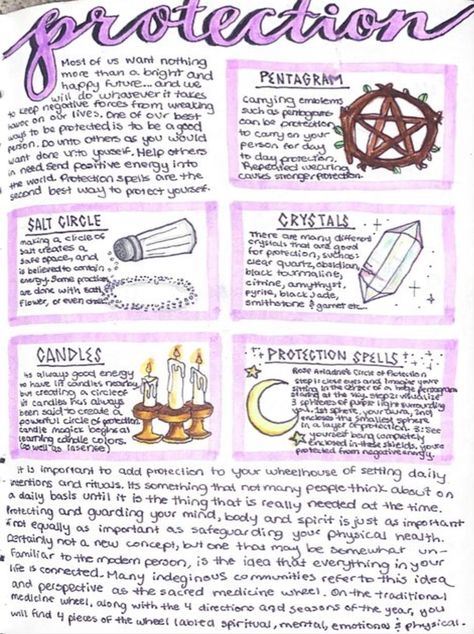 protection
Most of us want nothing
more than a bright and
happy future... and we
will do whatever it takes
to keep negative forces from wreaking
havoc on our lives. One of our best
ways to be protected is to be a good
person. Do unto others as you would
want done unto youself. Help others
in need. Send positive energy into
the world. Protection spells are the
second best way to protect yourself.
PENTAGRAM
carrying emblems
such as pentagrams
can be protection
to carry on your
person for day
to day protection.
Repeated wearing
causes stronger protection.
SALT CIRCLE
making a circle of
salt creates a
safe space, and
is believed to contain
energy. Some practices
are done with salt,
flower, or even
CRYSTALS
There are many different
crystals that are good
for protection, such as:
clear quartz, obsidian,
black tourmaline,
citrine, amythyst,
pyrite, black jade,
smithstone & garnet etc.
CANDLES
its always good energy
to have lit candles nearby
but creating a circle of
lit candles has always
been said to create a
powerful circle of protection
candle magick begins at
learning candle colors.
(as well as insense)
PROTECTION SPELLS
Rose Ariadne's Circle of Protection
step 1: close eyes and imagine you're
sitting in the center of a huge pentagram
staring at the sky. step 2: visualize
3 spheres of purple light surrounding
you. 1st sphere, your aura, 2nd
encloses the smallest sphere
in a layer of protection. 3: see
yourself being completely
enclosed in these shields. you're
protected from negative energy.
it is important to add protection to your wheelhouse of setting daily
intentions and rituals. Its something that not many people think about on
a daily basis until it is the thing that is really needed at the time.
Protecting and guarding your mind, body and spirit is just as important
if not equally as important as safeguarding your physical health.
Certainly not a new concept, but one that may be somewhat un-
familiar to the modern person, is the idea that everything in your
life is connected. Many indeginous communities refer to this idea
and perspective as the sacred medicine wheel. On the traditional
medicine wheel, along with the 4 directions and seasons of the year, you
will find 4 pieces of the wheel labled spiritual, mental, emotional & physical.